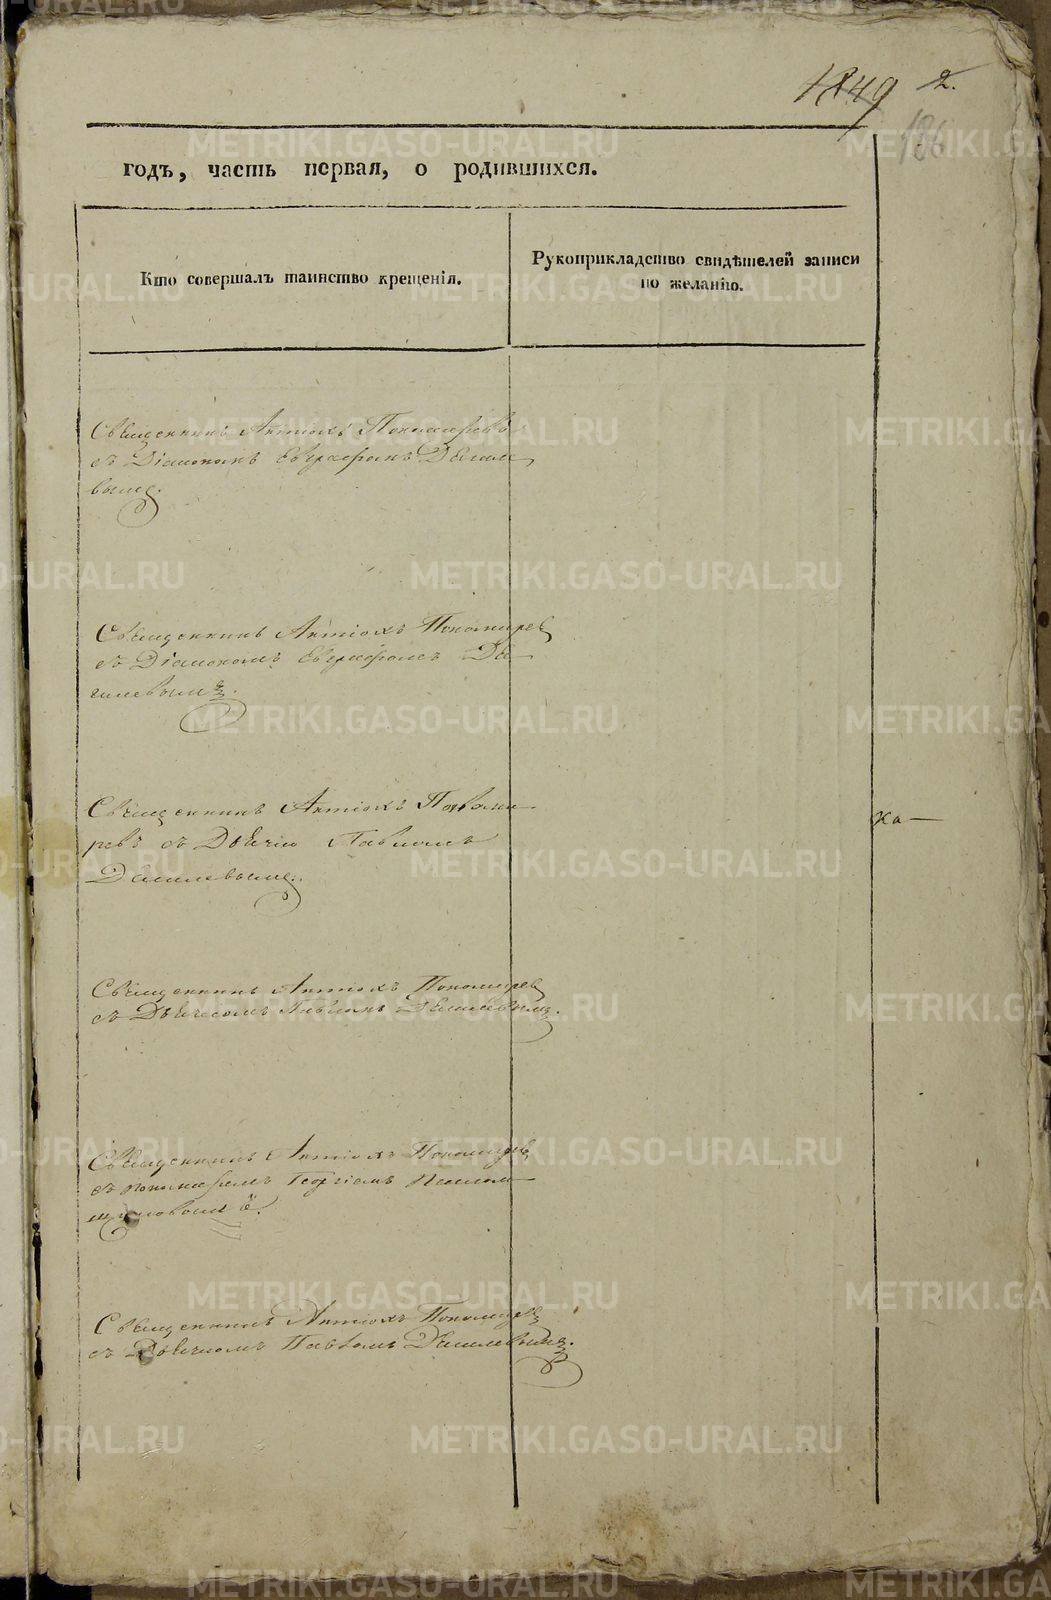 1849 2.
186
годъ, часть первая, о родившихся.
Кто совершалъ таинство крещенія.
Рукоприкладство свидѣтелей записи
по желанію.
Священникъ Антіохъ Пономаревъ
съ Діакономъ Евграфомъ
вымъ.
Священникъ Антіохъ Пономарев
съ Діакономъ Евграфомъ
Священникъ Антіохъ Понома-
ревъ съ Дьячко Павломъ
Священникъ Антіохъ Пономарев
съ Дьячкомъ Павломъ
Священникъ Антіохъ Пономарев
съ пономаремъ Георгіемъ
Священникъ Антіохъ Пономарев
съ Дьячкомъ Павломъ
ха—
METRIKI.GASO-URAL.RU